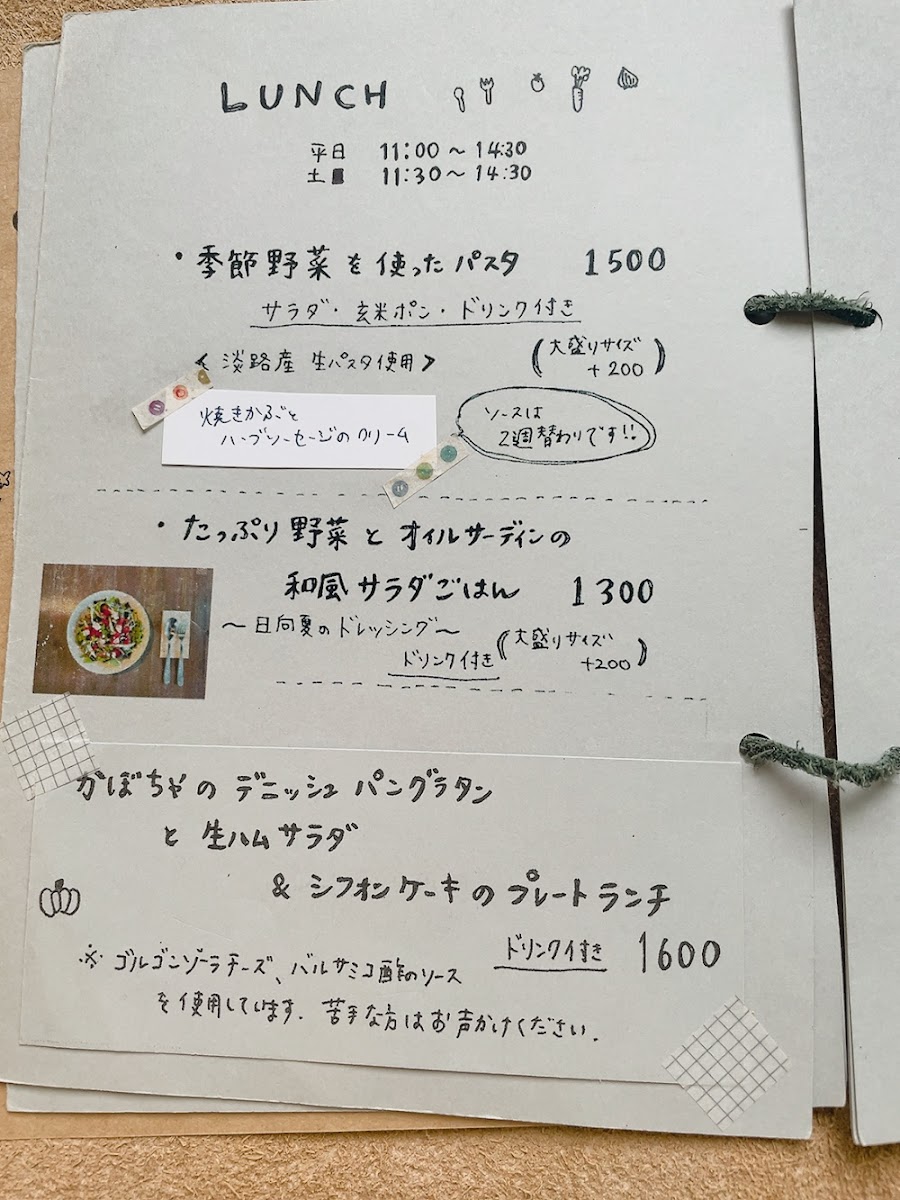 LUNCH
平日 11:00～14:30
土 11:30～14:30
・季節野菜を使ったパスタ 1500
サラダ・玄米ポン・ドリンク付き
<淡路産 生パスタ使用>
(大盛りサイズ
+200)
焼きかぶと
ハーブソーセージのクリーム
ソースは
2週替わりです!!
・たっぷり野菜とオイルサーディンの
和風サラダごはん 1300
～日向夏のドレッシング～
(大盛りサイズ
+200)
ドリンク付き
かぼちゃのデニッシュパングラタン
と生ハムサラダ
&シフォンケーキのプレートランチ
ドリンク付き 1600
※ゴルゴンゾーラチーズ、バルサミコ酢のソース
を使用しています. 苦手な方はお声かけください.